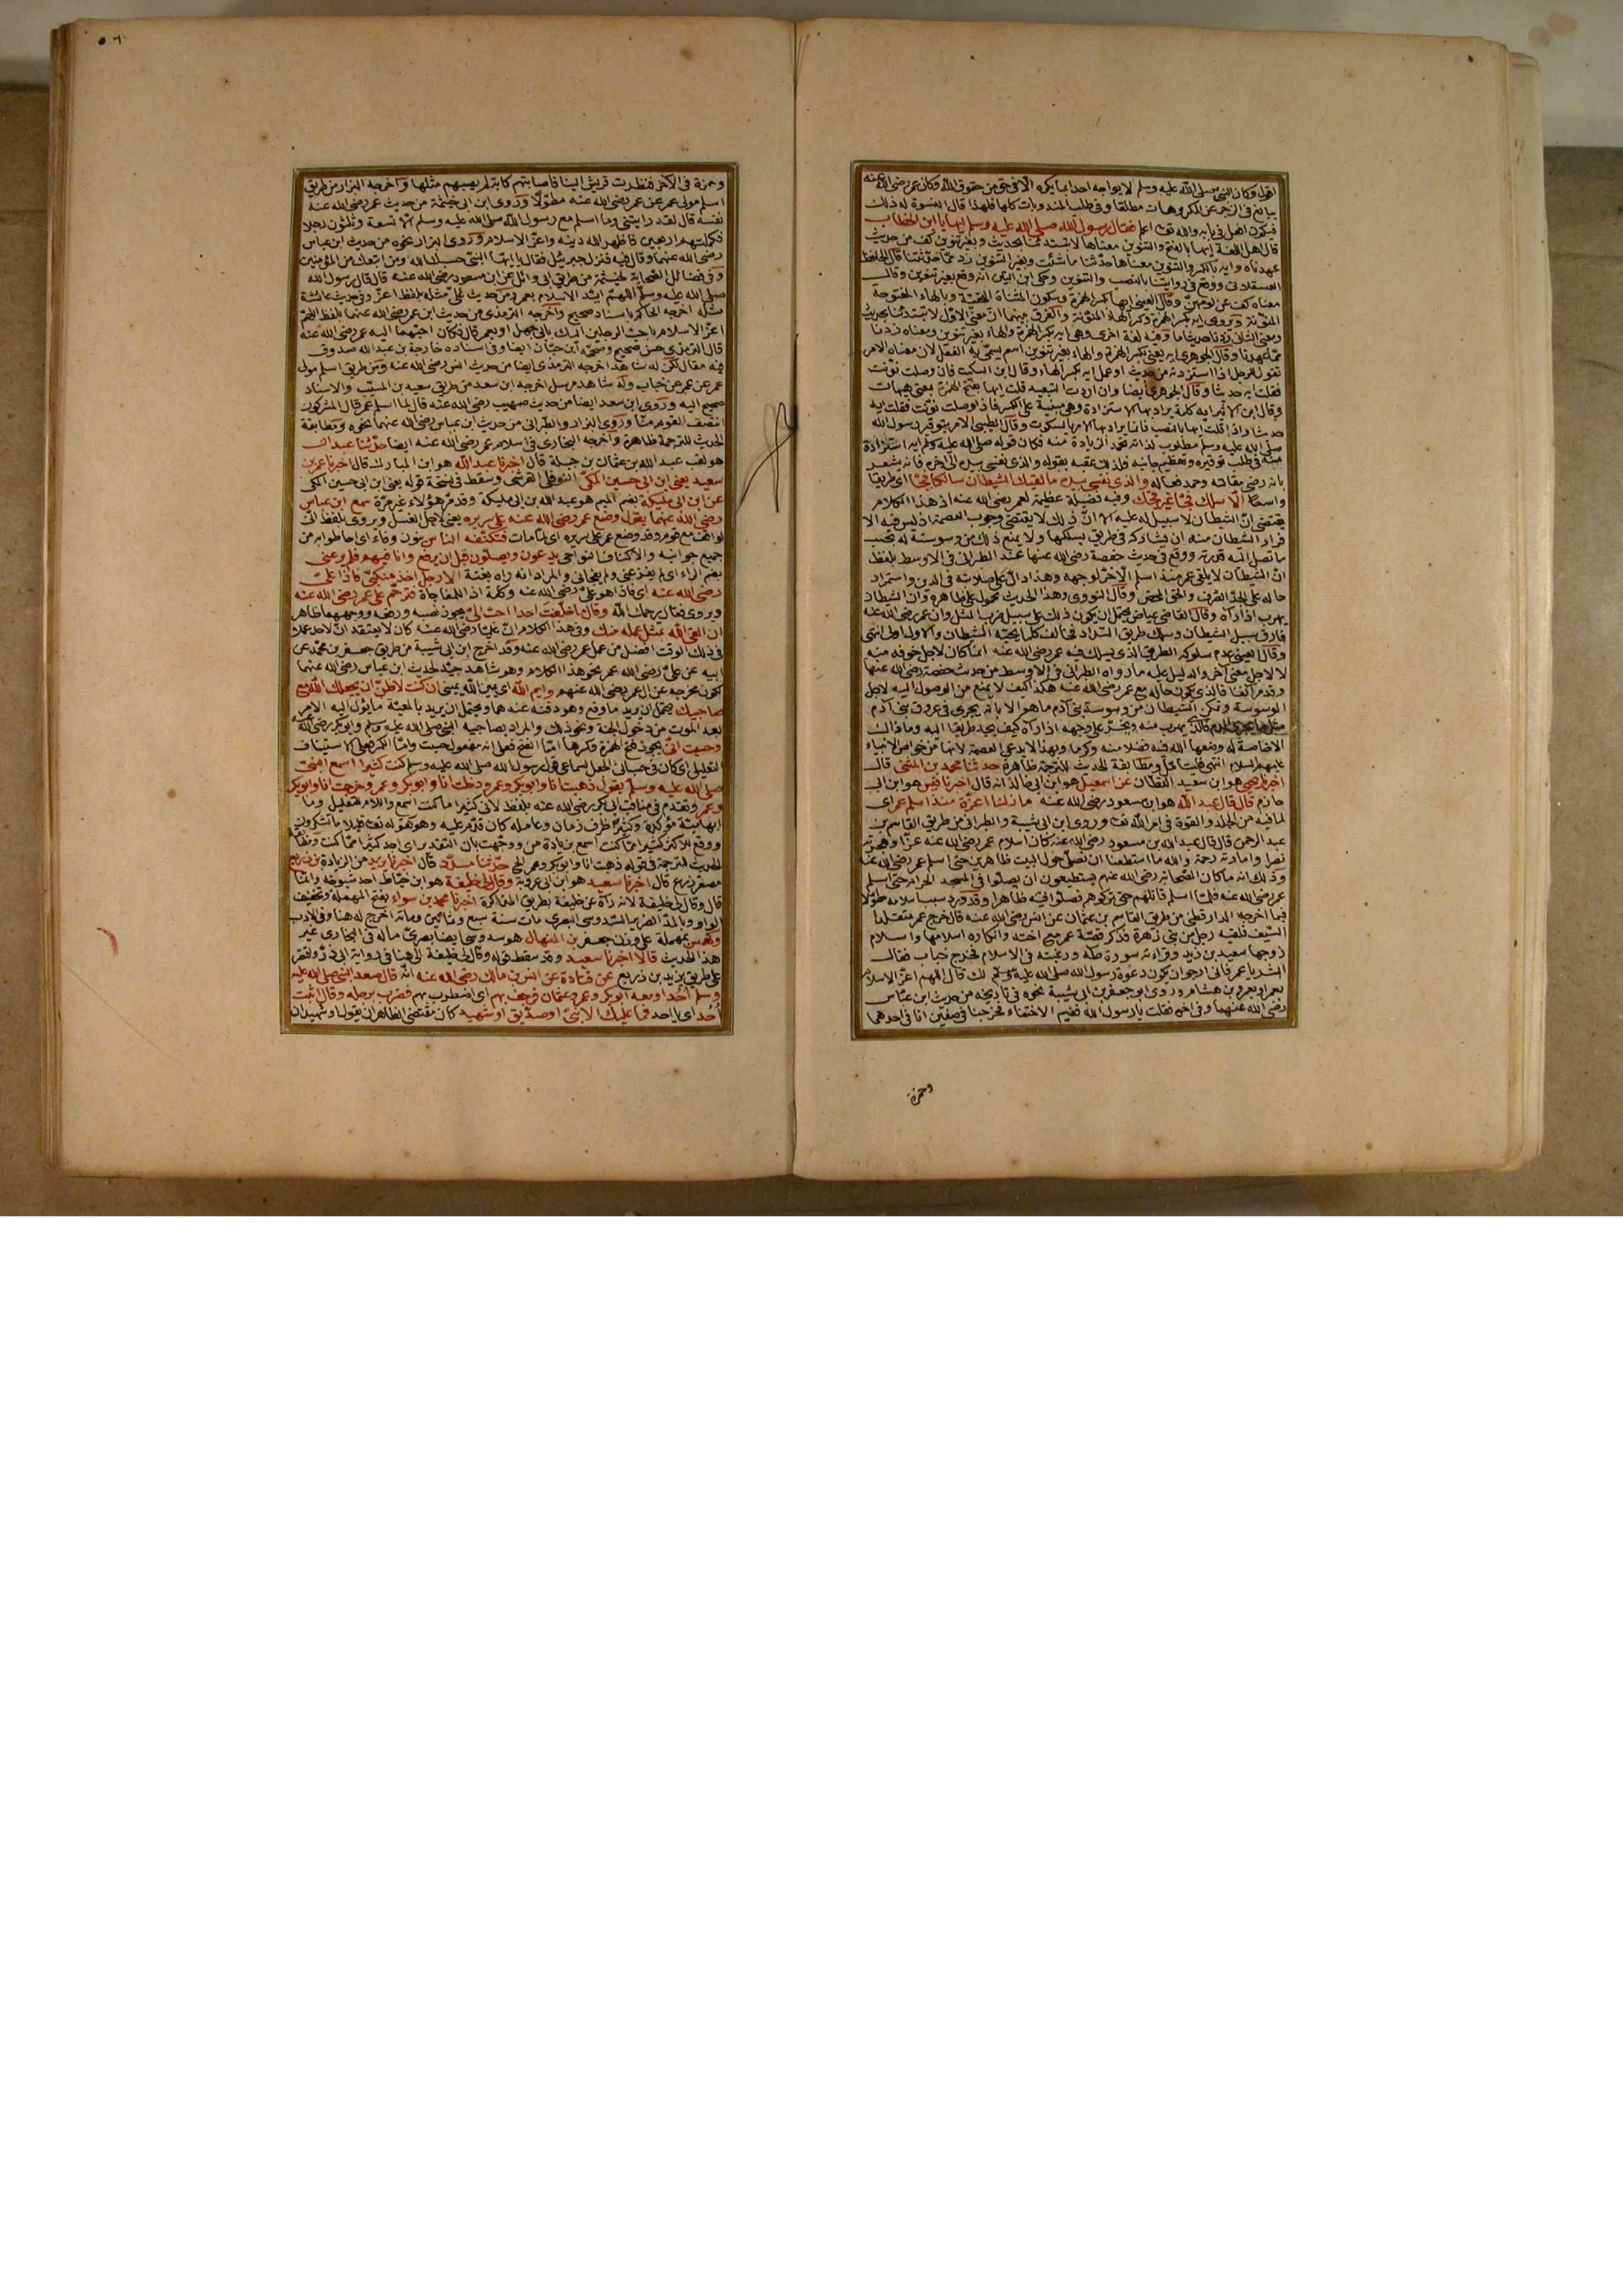 افظ وكان النبي صلى الله عليه وسلم لا يواجه احدا بما يكره الا في حق من حقوق الله وكان عمر رضي الله عنه
يبالغ في الزجر عن المكروهات مطلقا وفي طلب المندوبات كلها فلهذا قال النسوة له ذلك
فقال رسول الله صلى الله عليه وسلم ايها يا ابن الخطاب
قال اهل اللغة ايها بالفتح والتنوين معناها لا تبتدئنا بحديث وبغير تنوين كف من حديث
عهدناه وايه بالكسر والتنوين معناها حدثنا ما شئت وبغير التنوين زد مما حدثتنا قال الحافظ
العسقلاني ووقع في روايتنا بالنصب والتنوين وحكى ابن التين انه وقع بغير تنوين وقال
معناه كف عن لومهن وقال العيني ايها بكسر الهمزة وسكون المثناة التحتية وبالهاء المفتوحة
المنونة ويروى ايه بكسر الهمزة وكسر الهاء المنونة والفرق بينهما ان معنى الاول لا تبتدئنا بحديث
ومعنى الثاني زدنا حديثا ما وفيه لغة اخرى وهي ايه بكسر الهمزة والهاء بغير تنوين ومعناه زدنا
مما عهدنا وقال الجوهري ايه يعني بكسر الهمزة والهاء بغير تنوين اسم يسمى به الفعل لان معناه الامر
تقول للرجل اذا استزدته من حديث او عمل ايه بكسر الهاء وقال ابن السكيت فان وصلت نونت
فقلت ايه حديثا وقال الجوهري ايضا وان اردت التبعيد قلت ايها بفتح الهمزة بمعنى هيهات
وقال ابن الاثير ايه كلمة يراد بها الاستزادة وهي مبنية على الكسر فاذا وصلت نونت فقلت ايه
حدثنا واذا قلت ايها بالنصب فانما يراد بها الامر بالسكوت وقال الطيبي الامر بتوقير رسول الله
صلى الله عليه وسلم مطلوب لذاته تحمد الزيادة منه فكان قوله صلى الله عليه وسلم ايه استزادة
منه في طلب توقيره وتعظيم جانبه فلذلك عقبه بقوله والذي نفسي بيده الى اخره فانه يشعر
بانه رضي مقالته وحمد فعاله والذي نفسي بيده ما لقيك الشيطان سالكا فجا اي طريقا
واسعا الا سلك فجا غير فجك وفيه فضيلة عظيمة لعمر رضي الله عنه اذ هذا الكلام
يقتضي ان الشيطان لا سبيل له عليه الا ان ذلك لا يقتضي وجوب العصمة اذ ليس فيه الا
فرار الشيطان منه ان يشاركه في طريق يسلكها ولا يمنع ذلك من وسوسته له بحسب
ما تصل اليه قدرته ووقع في حديث حفصة رضي الله عنها عند الطبراني في الاوسط بلفظ
ان الشيطان لا يلقى عمر منذ اسلم الا خر لوجهه وهذا دال على صلابته في الدين واستمرار
حاله على الجد الصرف والحق المحض وقال النووي وهذا الحديث محمول على ظاهره وان الشيطان
يهرب اذا راه وقال القاضي عياض يحتمل ان يكون ذلك على سبيل ضرب المثل وان عمر رضي الله عنه
فارق سبيل الشيطان وسلك طريق السداد فخالف كل ما يحبه الشيطان والاول اولى انتهى
وقال العيني عدم سلوكه الطريق الذي يسلك فيه عمر رضي الله عنه انما كان لاجل خوفه منه
لا لاجل معنى اخر والدليل عليه ما رواه الطبراني في الاوسط من حديث حفصة رضي الله عنها
وقد مر انفا فالذي يكون حاله مع عمر رضي الله عنه هكذا كيف لا يمنع من الوصول اليه لاجل
الوسوسة وتمكن الشيطان من وسوسة بني آدم ما هو الا بانه يجري في عروق بني آدم
مثل ما يجري الدم فالذي يهرب منه ويخر على وجهه اذا راه كيف يجد طريقا اليه وما ذاك
الا خاصة له وضعها الله فيه فضلا منه وكرما وبهذا لا يدعى العصمة لانها من خواص الانبياء
عليهم السلام انتهى فليتأمل ومطابقة الحديث للترجمة ظاهرة حدثنا محمد بن المثنى قال
اخبرنا يحيى هو ابن سعيد القطان عن اسمعيل هو ابن ابي خالد انه قال اخبرنا قيس هو ابن ابي
حازم قال قال عبد الله هو ابن مسعود رضي الله عنه ما زلنا اعزة منذ اسلم عمر اي
لما فيه من الجلد والقوة في امر الله تعالى وروى ابن ابي شيبة والطبراني من طريق القاسم بن
عبد الرحمن قال قال عبد الله بن مسعود رضي الله عنه كان اسلام عمر رضي الله عنه عزا وهجرته
نصرا وامارته رحمة والله ما استطعنا ان نصلي حول البيت ظاهرين حتى اسلم عمر رضي الله عنه
وذلك انه ما كان الصحابة رضي الله عنهم يستطيعون ان يصلوا في المسجد الحرام حتى اسلم
عمر رضي الله عنه فلما اسلم قاتلهم حتى تركوهم فصلوا فيه ظاهرا وقد ورد سبب اسلامه مطولا
فيما اخرجه الدارقطني من طريق القاسم بن عثمان عن انس رضي الله عنه قال خرج عمر متقلدا
السيف فلقيه رجل من بني زهرة فذكر قصة عمر مع اخته وانكاره اسلامها واسلام
زوجها سعيد بن زيد وقراءته سورة طه ورغبته في الاسلام فخرج خباب فقال
ابشر يا عمر فاني ارجو ان يكون دعوة رسول الله صلى الله عليه وسلم لك قال اللهم اعز الاسلام
بعمر او بعمرو بن هشام وروى ابو جعفر بن ابي شيبة نحوه في تاريخه من حديث ابن عباس
رضي الله عنهما وفي اخره فقلت يا رسول الله ففيم الاختفاء فخرجنا في صفين انا في احدهما
وحمزة
٥٦
وحمزة في الآخر فنظرت قريش الينا فاصابتهم كآبة لم يصبهم مثلها واخرجه البزار من طريق
اسلم مولى عمر عن عمر رضي الله عنه مطولا وروى ابن ابي خيثمة من حديث عمر رضي الله عنه
نفسه قال لقد رايتني وما اسلم مع رسول الله صلى الله عليه وسلم الا تسعة وثلثون رجلا
فكملتهم اربعين فاظهر الله دينه واعز الاسلام وروى البزار نحوه من حديث ابن عباس
رضي الله عنهما وقال فيه فنزل جبريل فقال يا ايها النبي حسبك الله ومن اتبعك من المؤمنين
وفي فضائل الصحابة لخيثمة من طريق ابي وائل عن ابن مسعود رضي الله عنه قال قال رسول الله
صلى الله عليه وسلم اللهم ايد الاسلام بعمر ومن حديث علي مثله بلفظ اعز وفي حديث عائشة
مثله اخرجه الحاكم باسناد صحيح واخرجه الترمذي من حديث ابن عمر رضي الله عنهما بلفظ اللهم
اعز الاسلام باحب الرجلين اليك بابي جهل او بعمر قال فكان احبهما اليه عمر رضي الله عنه
قال الترمذي حسن صحيح وصححه ابن حبان ايضا وفي اسناده خارجة بن عبد الله صدوق
فيه مقال لكن له شاهد اخرجه الترمذي ايضا من حديث انس رضي الله عنه ومن طريق اسلم مولى
عمر عن عمر عن خباب وله شاهد مرسل اخرجه ابن سعد من طريق سعيد بن المسيب والاسناد
صحيح اليه وروى ابن سعد ايضا من حديث صهيب رضي الله عنه قال لما اسلم عمر قال المشركون
انتصف القوم منا وروى البزار والطبراني من حديث ابن عباس رضي الله عنهما نحوه ومطابقة
الحديث للترجمة ظاهرة واخرجه البخاري في اسلام عمر رضي الله عنه ايضا حدثنا عبدان
هو لقب عبد الله بن عثمان بن جبلة قال اخبرنا عبد الله هو ابن المبارك قال اخبرنا عمر بن
سعيد يعني ابن ابي حسين المكي النوفلي القرشي وسقط في نسخة قوله يعني ابن ابي حسين المكي
عن ابن ابي مليكة بضم الميم هو عبد الله بن ابي مليكة وقد مر هؤلاء غير مرة سمع ابن عباس
رضي الله عنهما يقول وضع عمر رضي الله عنه على سريره يعني لاجل الغسل ويروى بلفظ اني
لواقف مع قوم وقد وضع عمر على سريره اي لما مات فتكنفه الناس بنون وفاء اي احاطوا به من
جميع جوانبه والاكناف النواحي يدعون ويصلون قبل ان يرفع وانا فيهم فلم يرعني
بضم الراء اي لم يفزعني ولم يفجأني والمراد انه راه بغتة الا رجل اخذ منكبي فاذا علي
رضي الله عنه اي فاذا هو علي رضي الله عنه وكلمة اذا للمفاجاة فترحم على عمر رضي الله عنه
ويروى فقال رحمك الله وقال ما خلفت احدا احب الي يجوز نصبه ورفعه ووجههما ظاهر
ان القى الله بمثل عمله منك وفي هذا الكلام ان عليا رضي الله عنه كان لا يعتقد ان لاحد عملا
في ذلك الوقت افضل من عمل عمر رضي الله عنه وقد اخرج ابن ابي شيبة من طريق جعفر بن محمد عن
ابيه عن علي رضي الله عنه نحو هذا الكلام وهو شاهد جيد لحديث ابن عباس رضي الله عنهما
لكون مخرجه عن آل عمر رضي الله عنهم وايم الله اي يمين الله يميني ان كنت لاظن ان يجعلك الله مع
صاحبيك يحتمل ان يريد ما وقع وهو دفنه عندهما ويحتمل ان يريد بالمعية ما يؤل اليه الامر
بعد الموت من دخول الجنة ونحو ذلك والمراد بصاحبيه النبي صلى الله عليه وسلم وابو بكر رضي الله عنه
وحسبت اني يجوز فتح الهمزة وكسرها اما الفتح فعلى انه مفعول حسبت واما الكسر فعلى الاستيناف
التعليلي اي كان في حسباني لاجل سماعي قول رسول الله صلى الله عليه وسلم كنت كثيرا اسمع النبي
صلى الله عليه وسلم يقول ذهبت انا وابو بكر وعمر ودخلت انا وابو بكر وعمر وخرجت انا وابو بكر
وعمر وتقدم في مناقب ابي بكر رضي الله عنه بلفظ لاني كثيرا ما كنت اسمع واللام للتعليل وما
ابهامية مؤكدة وكثيرا ظرف زمان وعامله كان قدم عليه وهو كقوله تعالى قليلا ما تشكرون
ووقع للاكثر كثيرا مما كنت اسمع بزيادة من ووجهت بان التقدير اي اجد كثيرا مما كنت ومطابقة
الحديث للترجمة في قوله ذهبت انا وابو بكر وعمر الخ حدثنا مسدد قال اخبرنا يزيد من الزيادة بن زريع
مصغر زرع قال اخبرنا سعيد هو ابن ابي عروبة وقال لي خليفة هو ابن خياط احد شيوخه وانما
قال وقال لي خليفة لانه رواه عن خليفة بطريق المذاكرة اخبرنا محمد بن سواء بفتح المهملة وتخفيف
الواو وبالمد الضرير السدوسي البصري مات سنة سبع وثمانين ومائة اخرج له هنا وفي الادب
وكهمس بمهملة على وزن جعفر بن المنهال هو سدوسي ايضا بصري ما له في البخاري غير
هذا الحديث قالا اخبرنا سعيد وقد سقط قوله وقال لي خليفة الى هنا في رواية ابي ذر واقتصر
على طريق يزيد بن زريع عن قتادة عن انس بن مالك رضي الله عنه انه قال صعد النبي صلى الله عليه
وسلم احدا ومعه ابو بكر وعمر وعثمان فرجف بهم اي اضطرب بهم فضرب برجله وقال اثبت
احد اي يا احد فما عليك الا نبي او صديق او شهيد كان مقتضى الظاهر ان يقول او شهيدان